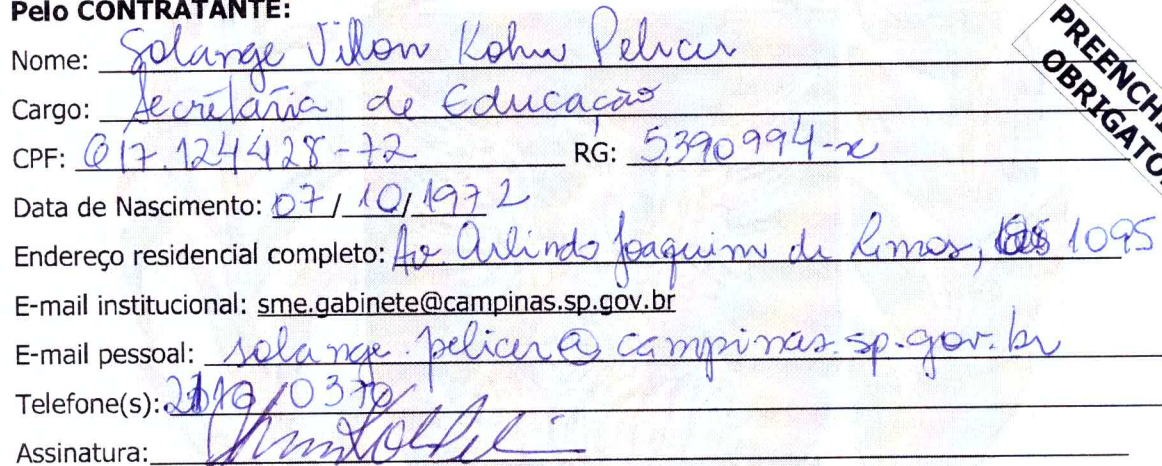 Pelo CONTRATANTE:
PREENCHI
OBRIGATO
Nome: Solange Villon Kohn Pelicer
Cargo: Secretária de Educação
CPF: 017.124428-72 RG: 5390994-x
Data de Nascimento: 07/10/1972
Endereço residencial completo: Av Arlindo Joaquim de Lemos, 1095
E-mail institucional: sme.gabinete@campinas.sp.gov.br
E-mail pessoal: solange.pelicer@campinas.sp.gov.br
Telefone(s): 2116/0370
Assinatura: